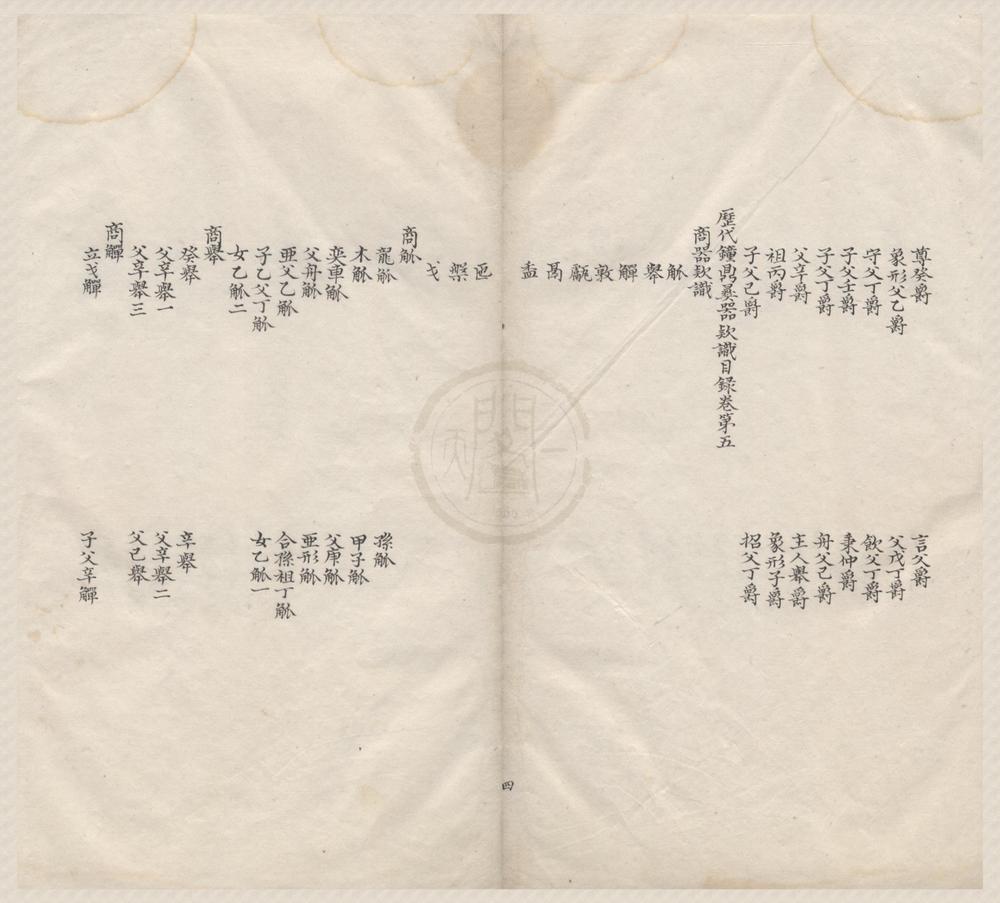 尊癸爵　言父爵
象形父乙爵　父戊丁爵
守父丁爵　飲父丁爵
子父壬爵　秉仲爵
子父丁爵　舟父己爵
父辛爵　主人舉爵
祖丙爵　象形子爵
子父己爵　招父丁爵
歷代鐘鼎彝器欵識目録卷第五
商器欵識
觚
舉
觶
敦
甗
鬲
盉
四
匜
槃
戈
商觚
龍觚　孫觚
木觚　甲子觚
奕車觚　父庚觚
父舟觚　亞形觚
亞父乙觚　合孫祖丁觚
子乙父丁觚　女乙觚一
女乙觚二
商舉
癸舉　辛舉
父辛舉一　父辛舉二
父辛舉三　父己舉
商觶
立戈觶　子父辛觶